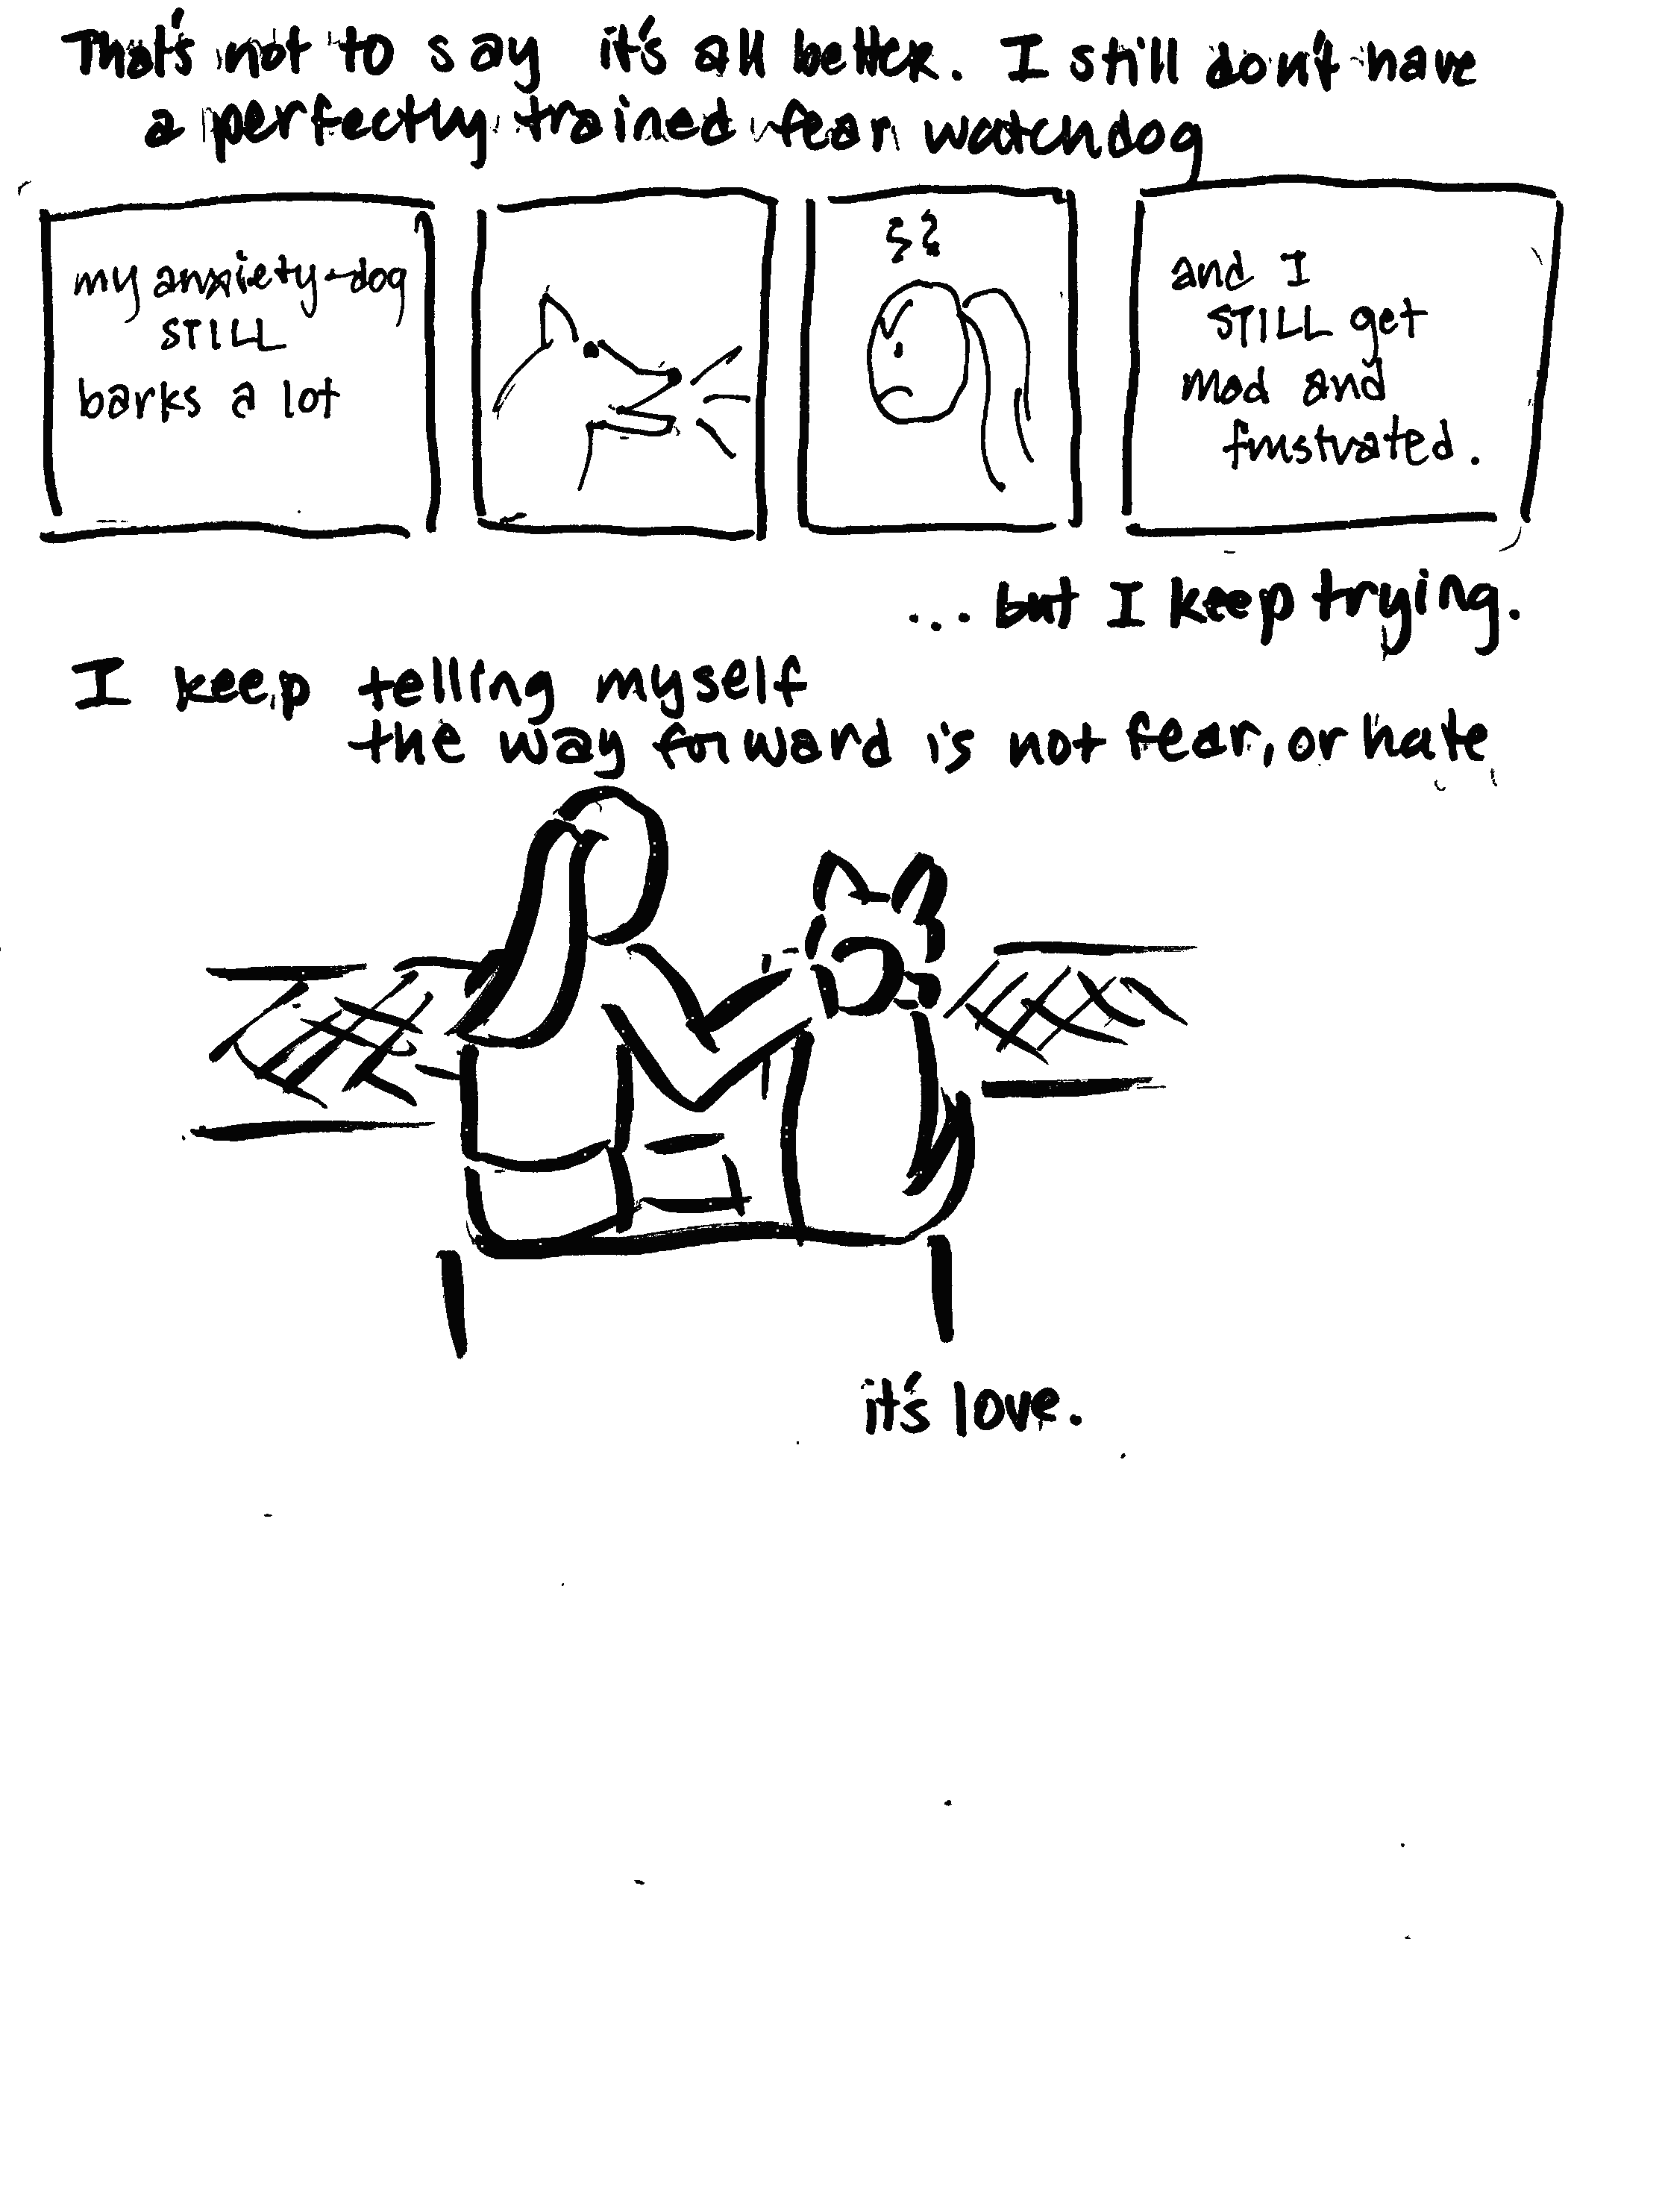 That's not to say it's all better. I still don't have
a perfectly trained fear watchdog
my anxiety-dog
STILL
barks a lot
and I
STILL get
mad and
frustrated.
... but I keep trying.
I keep telling myself
the way forward is not fear, or hate
it's love.